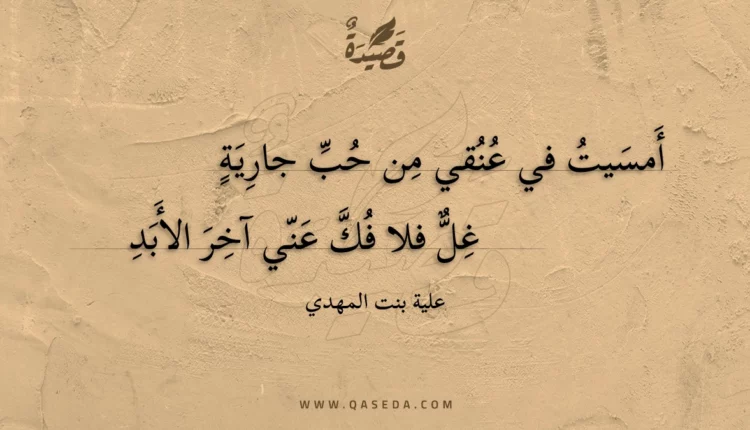 قَصِيْدَةٌ
أَمسَيتُ في عُنُقي مِن حُبِّ جارِيَةٍ
غِلٌّ فلا فُكَّ عَنّي آخِرَ الأَبَدِ
علية بنت المهدي
WWW.QASEDA.COM